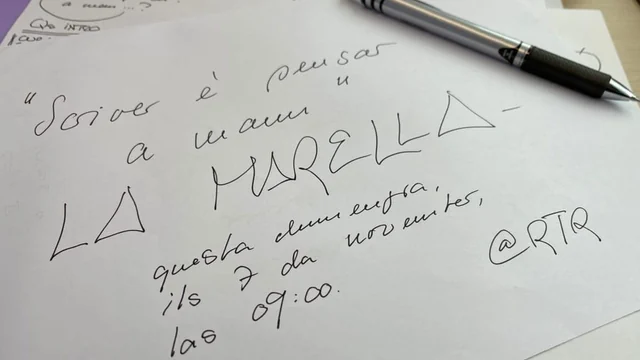 INTRO
"Scriver è pensar
a maun"
LA MARELLA-
questa dumengia,
ils 7 da november,
las 09:00.
@RTR